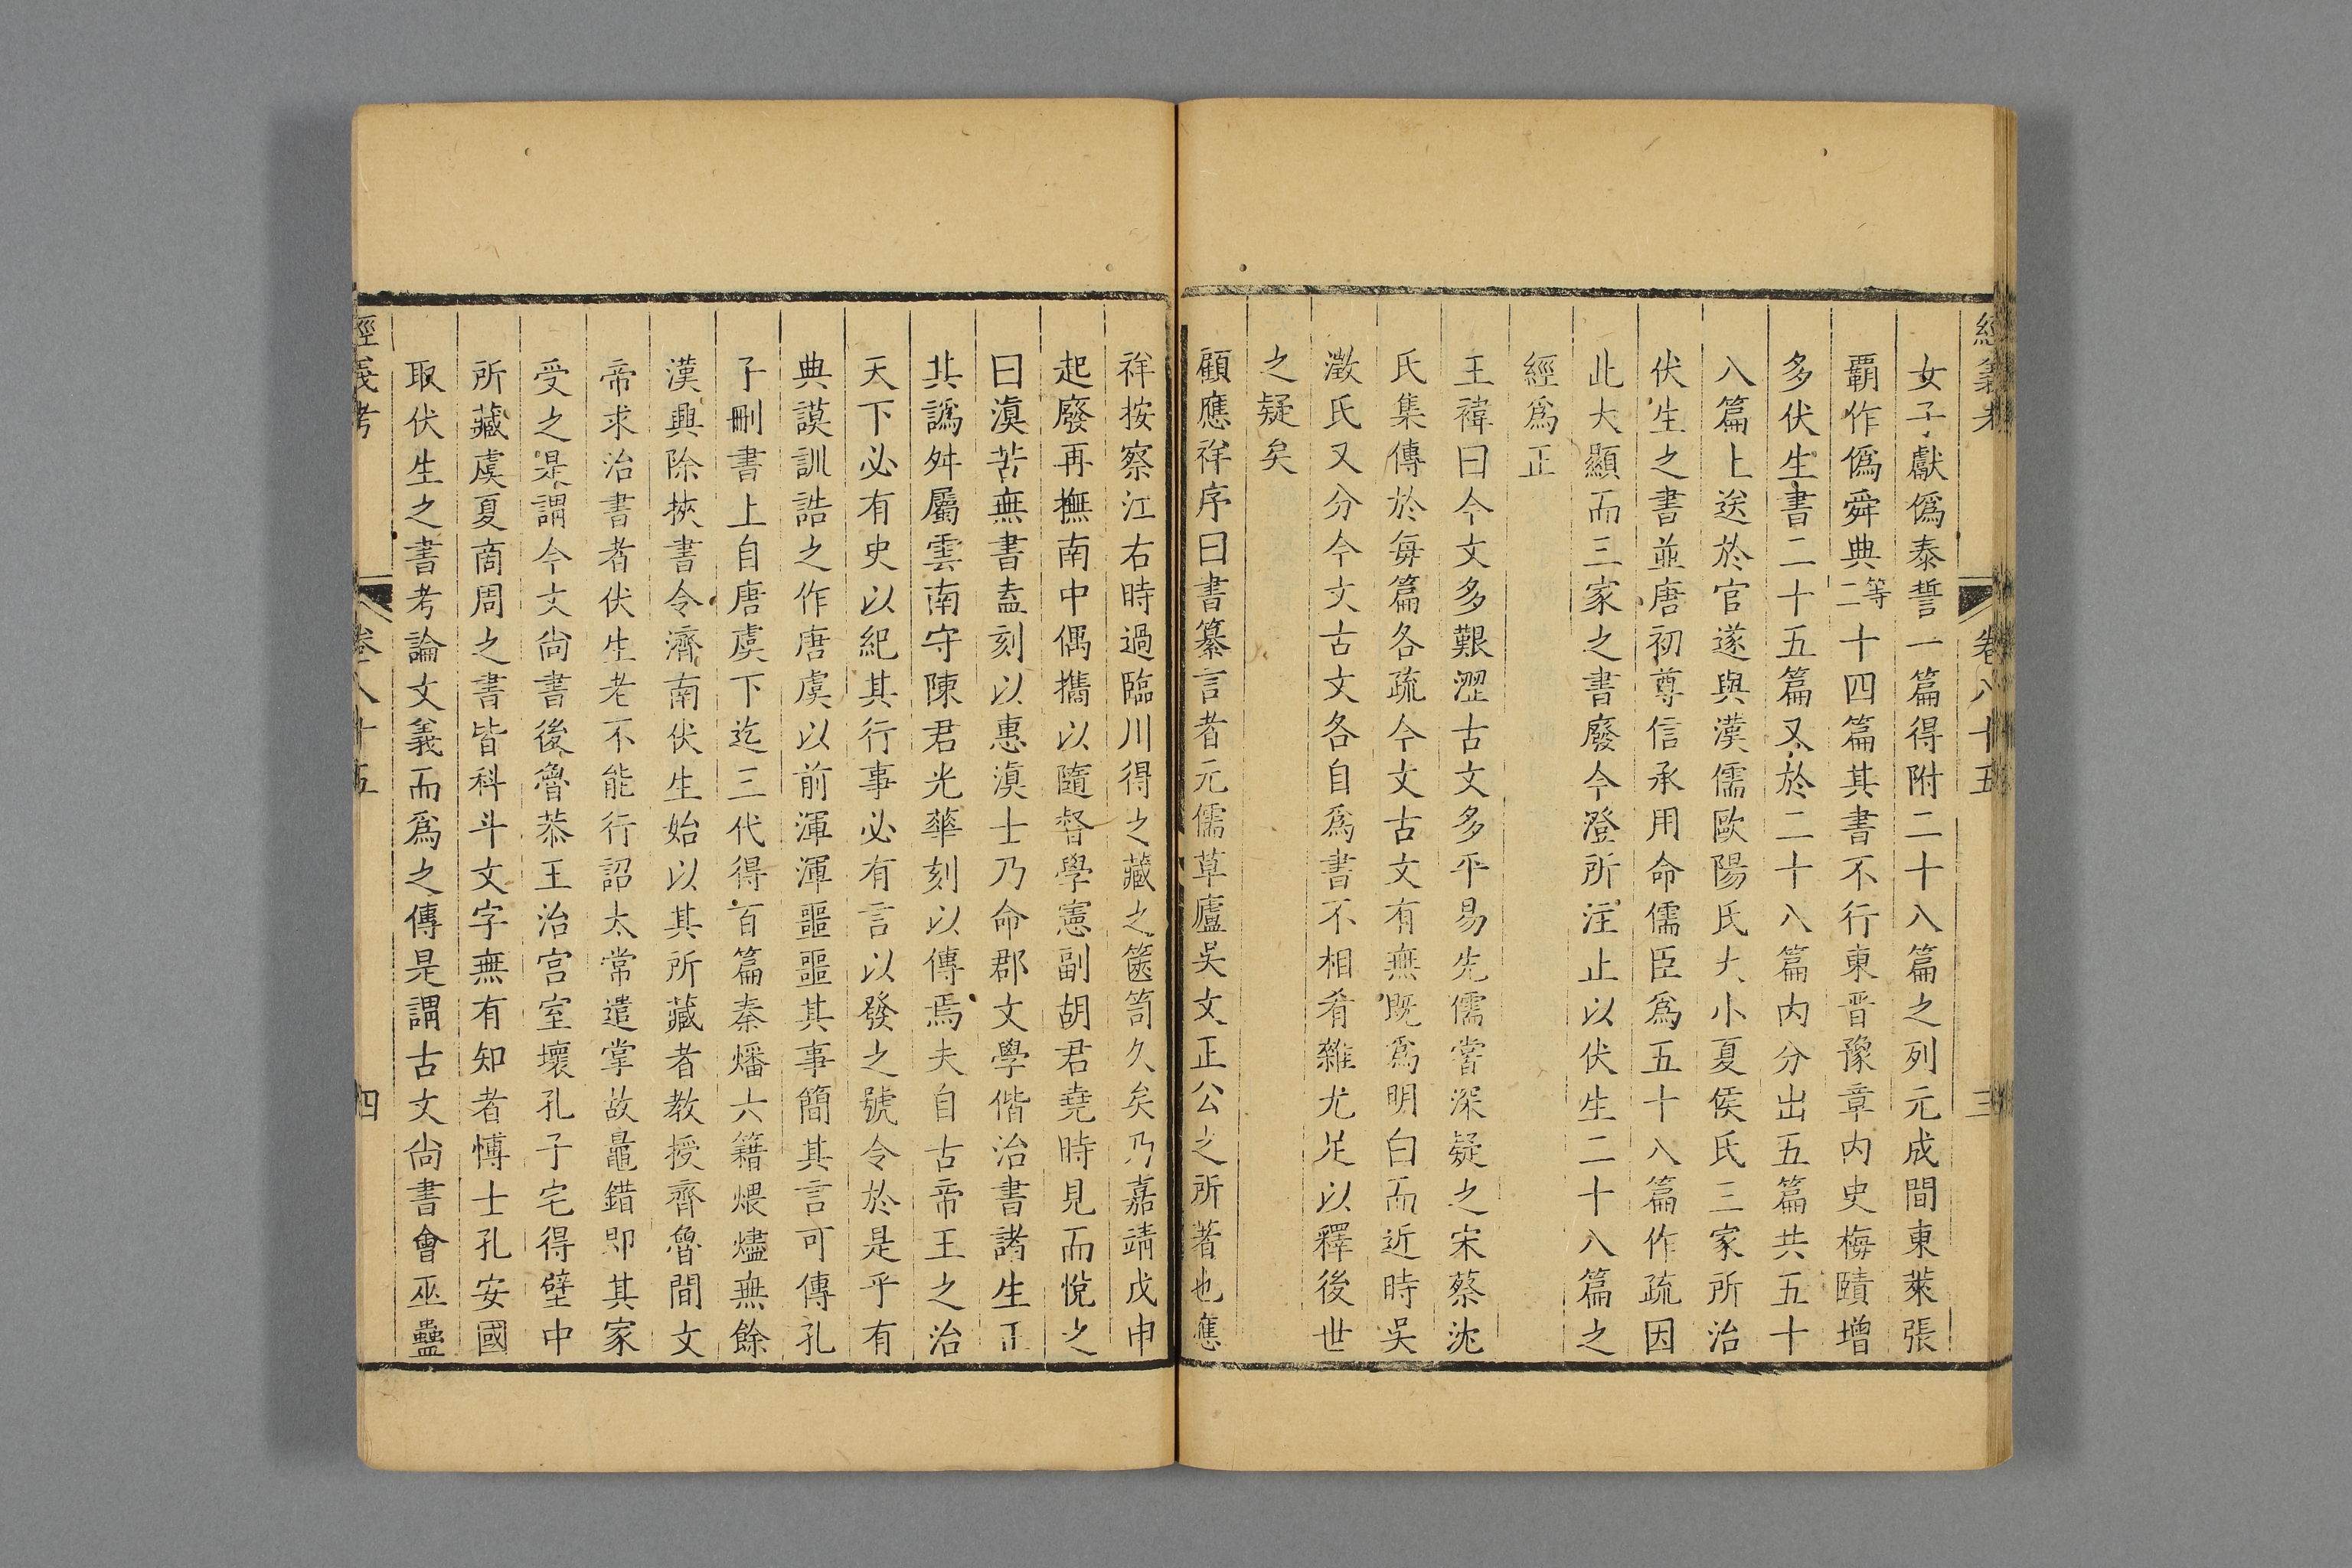 經義考 卷八十五 三
女子獻僞泰誓一篇得附二十八篇之列元成間東萊張
覇作僞舜典等二十四篇其書不行東晋豫章内史梅賾增
多伏生書二十五篇又於二十八篇内分出五篇共五十
八篇上送於官遂與漢儒歐陽氏大小夏侯氏三家所治
伏生之書並唐初尊信承用命儒臣爲五十八篇作疏因
此大顯而三家之書廢今澄所注止以伏生二十八篇之
經爲正
王禕曰今文多艱澀古文多平易先儒嘗深疑之宋蔡沈
氏集傳於每篇各疏今文古文有無旣爲明白而近時吳
澂氏又分今文古文各自爲書不相肴雜尤足以釋後世
之疑矣
顧應祥序曰書纂言者元儒草廬吳文正公之所著也應
祥按察江右時過臨川得之藏之篋笥久矣乃嘉靖戊申
起廢再撫南中偶攜以隨督學憲副胡君堯時見而悅之
曰滇苦無書盍刻以惠滇士乃命郡文學偕治書諸生正
其譌舛屬雲南守陳君光華刻以傳焉夫自古帝王之治
天下必有史以紀其行事必有言以發之號令於是乎有
典謨訓誥之作唐虞以前渾渾噩噩其事簡其言可傳孔
子刪書上自唐虞下迄三代得百篇秦燔六籍煨燼無餘
漢興除挾書令濟南伏生始以其所藏者教授齊魯間文
帝求治書者伏生老不能行詔太常遣掌故鼂錯即其家
受之是謂今文尚書後魯恭王治宮室壞孔子宅得壁中
所藏虞夏商周之書皆科斗文字無有知者博士孔安國
取伏生之書考論文義而爲之傳是謂古文尚書會巫蠱
經義考 卷八十五 四